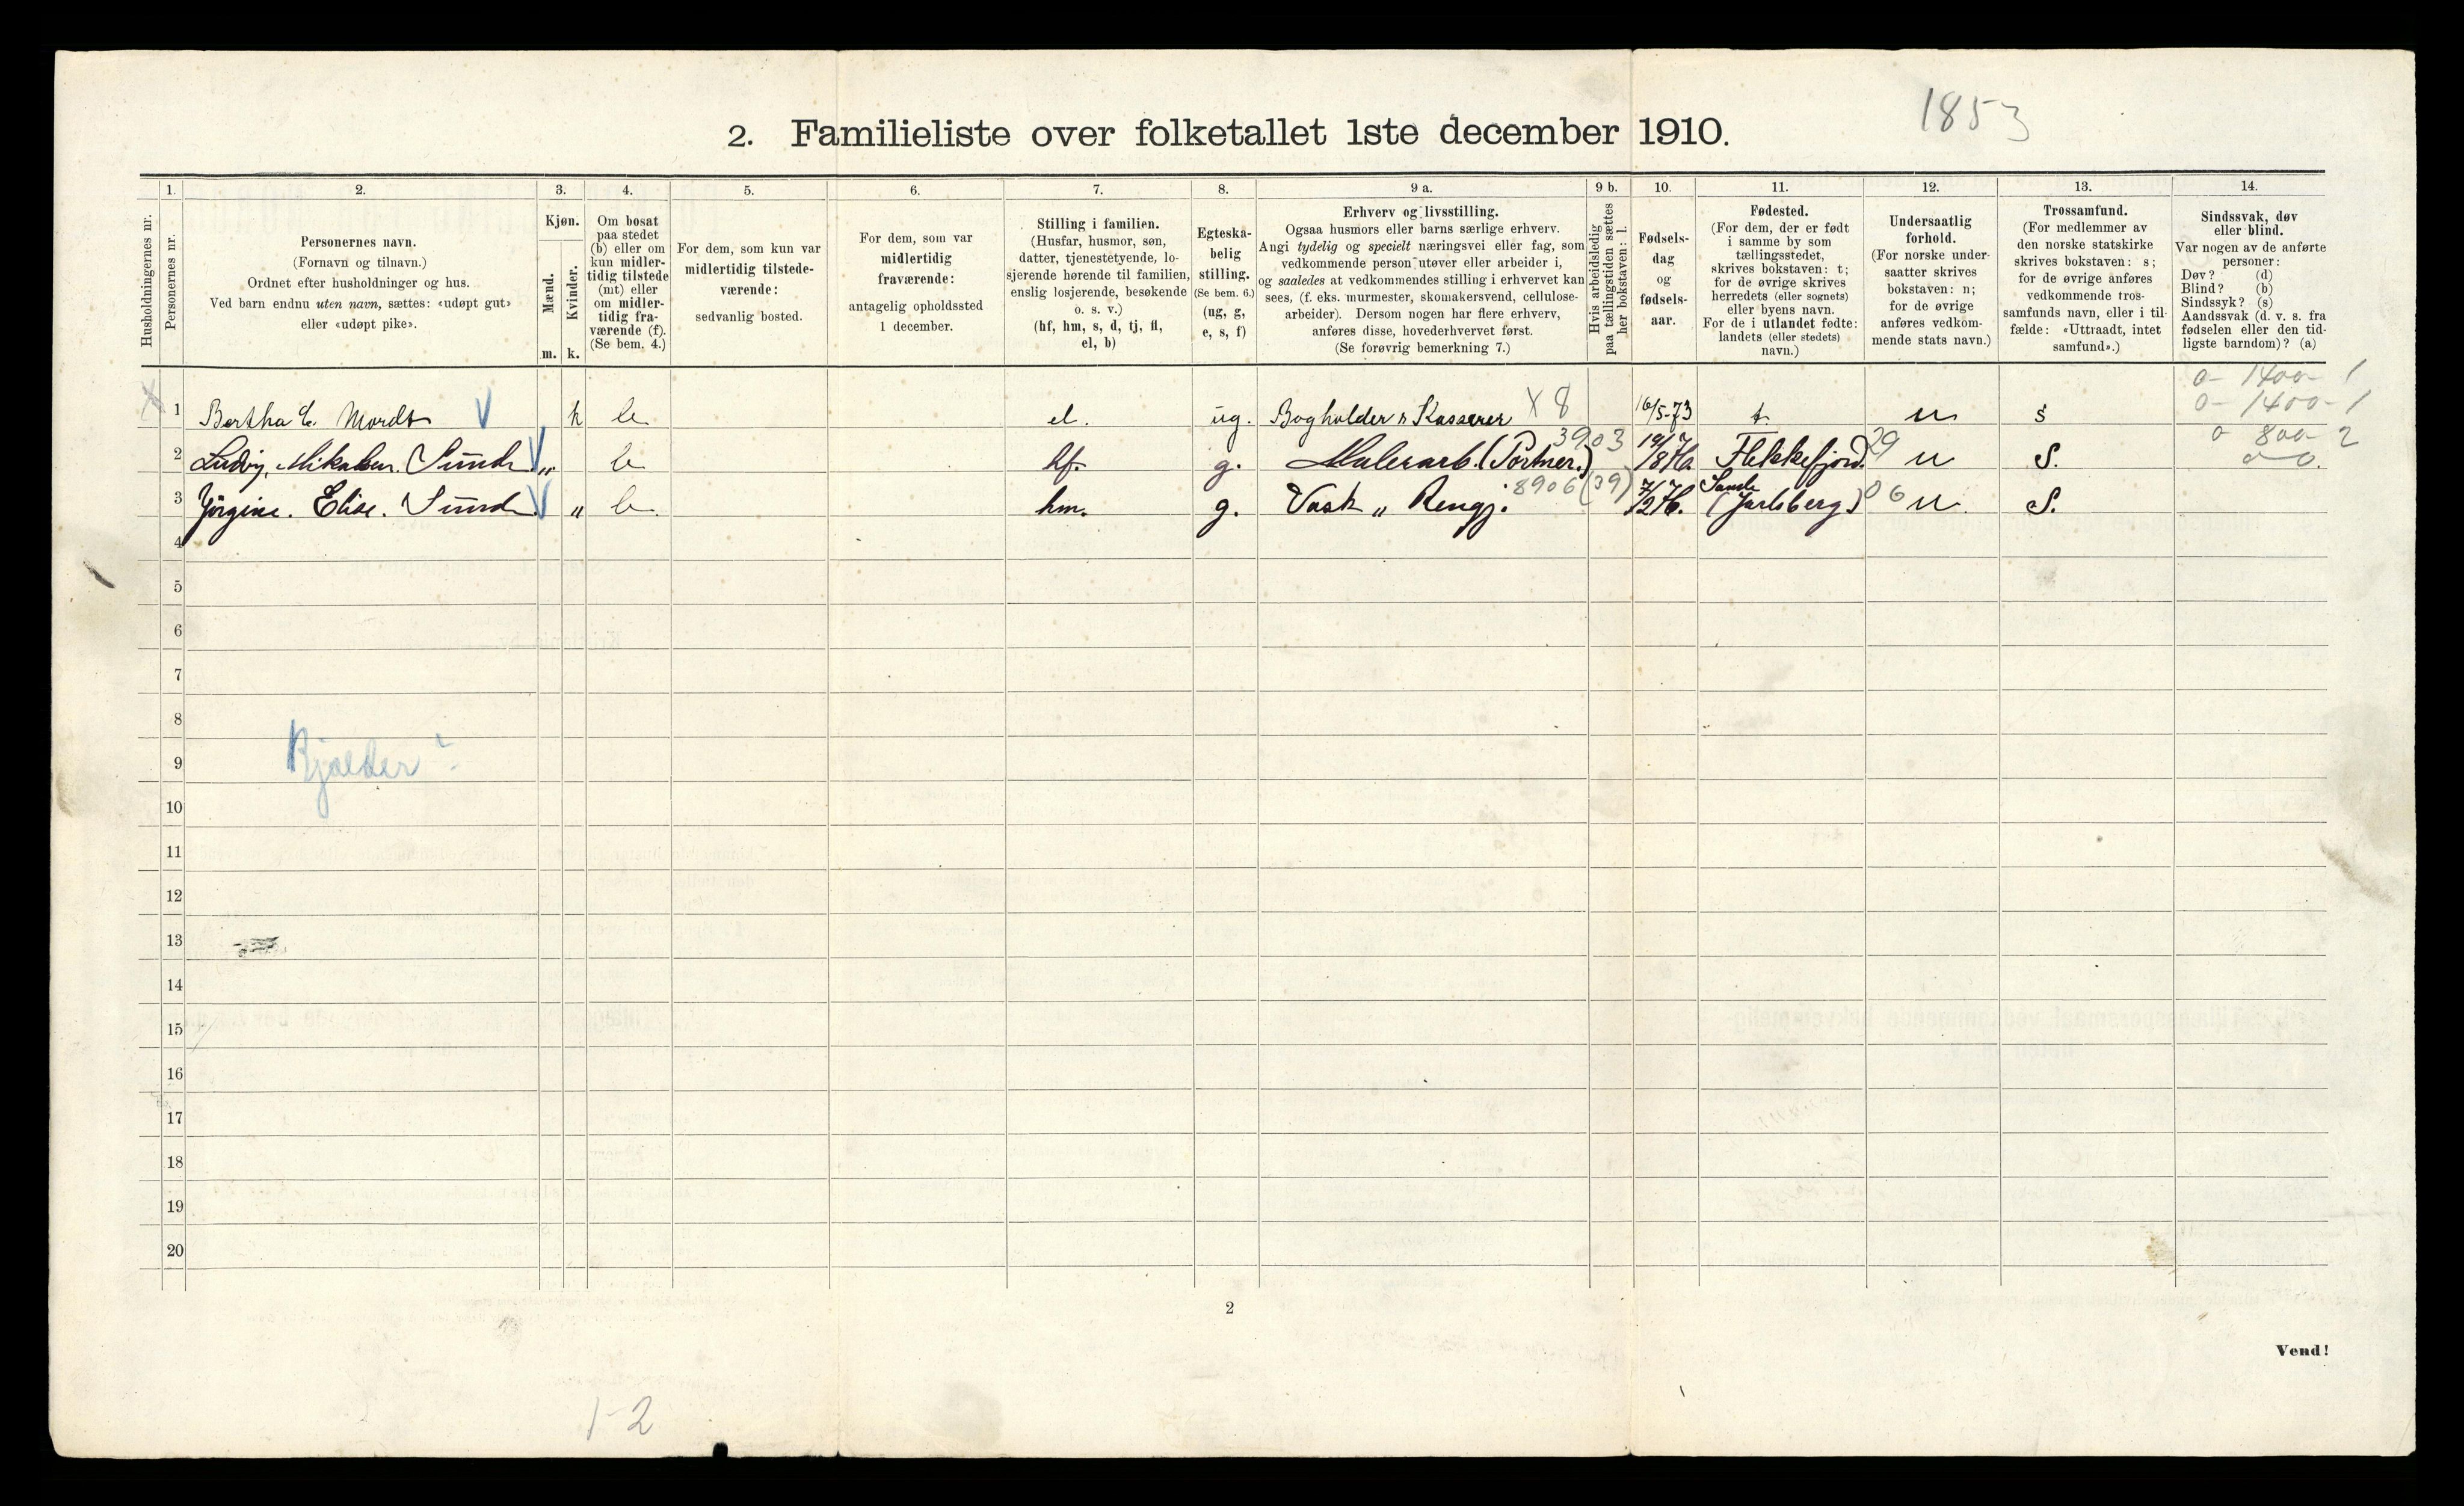 1853
2. Familieliste over folketallet 1ste december 1910.
1. 2. 3. 4. 5. 6. 7. 8. 9 a. 9 b. 10. 11. 12. 13. 14.
Husholdningernes nr.
Personernes nr.
Personernes navn.
(Fornavn og tilnavn.)
Ordnet efter husholdninger og hus.
Ved barn endnu uten navn, sættes: «udøpt gut»
eller «udøpt pike».
Kjøn.
Mænd.
Kvinder.
m. k.
Om bosat
paa stedet
(b) eller om
kun midler-
tidig tilstede
(mt) eller
om midler-
tidig fra-
værende (f).
(Se bem. 4.)
For dem, som kun var
midlertidig tilstede-
værende:
sedvanlig bosted.
For dem, som var
midlertidig
fraværende:
antagelig opholdssted
1 december.
Stilling i familien.
(Husfar, husmor, søn,
datter, tjenestetyende, lo-
sjerende hørende til familien,
enslig losjerende, besøkende
o. s. v.)
(hf, hm, s, d, tj, fl,
el, b)
Egteska-
belig
stilling.
(Se bem. 6.)
(ug, g,
e, s, f)
Erhverv og livsstilling.
Ogsaa husmors eller barns særlige erhverv.
Angi tydelig og specielt næringsvei eller fag, som
vedkommende person utøver eller arbeider i,
og saaledes at vedkommendes stilling i erhvervet kan
sees, (f. eks. murmester, skomakersvend, cellulose-
arbeider). Dersom nogen har flere erhverv,
anføres disse, hovederhvervet først.
(Se forøvrig bemerkning 7.)
Hvis arbeidsledig
paa tællingstiden sættes
her bokstaven: l.
Fødsels-
dag
og
fødsels-
aar.
Fødested.
(For dem, der er født
i samme by som
tællingsstedet,
skrives bokstaven: t;
for de øvrige skrives
herredets (eller sognets)
eller byens navn.
For de i utlandet fødte:
landets (eller stedets)
navn.)
Undersaatlig
forhold.
(For norske under-
saatter skrives
bokstaven: n;
for de øvrige
anføres vedkom-
mende stats navn.)
Trossamfund.
(For medlemmer av
den norske statskirke
skrives bokstaven: s;
for de øvrige anføres
vedkommende tros-
samfunds navn, eller i til-
fælde: «Uttraadt, intet
samfund».)
Sindssvak, døv
eller blind.
Var nogen av de anførte
personer:
Døv? (d)
Blind? (b)
Sindssyk? (s)
Aandssvak (d. v. s. fra
fødselen eller den tid-
ligste barndom)? (a)
0- 1400- 1
1 Bertha C. Mordt k b el. ug. Bogholder " Kasserer X 8 16/5-73 t n s 0- 1400-1
2 Ludvig Mikalsen Sund " b hf. g. Malerarb. (Portner.) 3903 Flekkefjord. 29 n S. 0 800 2
3 Jørgine. Elise. Sund " b. hm. g. Vask " Rengj. 8906 (39) Sande (Jarlsberg) 06 n. S. 0 0.
4
5
6
7
8
Kjælder
9
10
11
12
13
14
15
16
17
18
19
20
2
Vend!
1-2